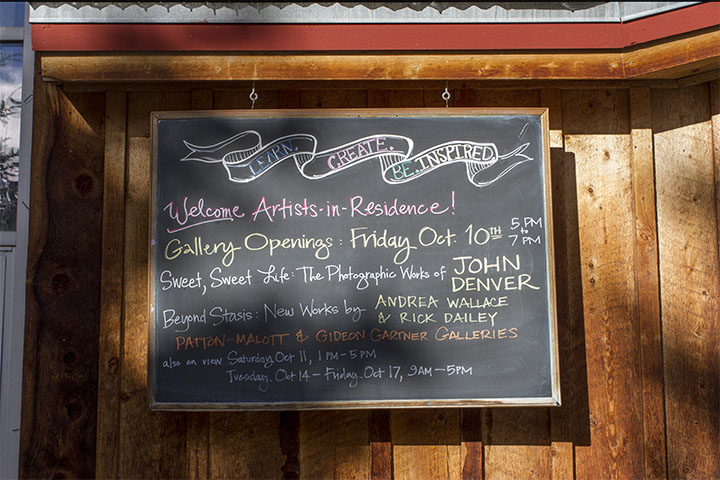 LEARN. CREATE. BE INSPIRED.
Welcome Artists-in-Residence!
Gallery Openings: Friday Oct. 10TH 5 PM to 7 PM
Sweet, Sweet Life: The Photographic Works of JOHN DENVER
Beyond Stasis: New Works by ANDREA WALLACE & RICK DAILEY
PATTON-MALOTT & GIDEON GARTNER GALLERIES
also on view Saturday, Oct 11, 1PM-5PM
Tuesday, Oct 14 - Friday, Oct 17, 9AM-5PM